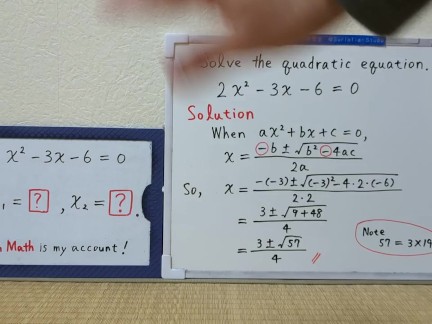 x² - 3x - 6 = 0
= ? , x₂ = ? .
Math is my account!
Solve the quadratic equation.
2x² - 3x - 6 = 0
Solution
When ax² + bx + c = 0,
x = \frac{-b ± \sqrt{b² - 4ac}}{2a}
So, x = \frac{-(-3) ± \sqrt{(-3)² - 4·2·(-6)}}{2·2}
= \frac{3 ± \sqrt{9 + 48}}{4}
= \frac{3 ± \sqrt{57}}{4}
Note
57 = 3×19